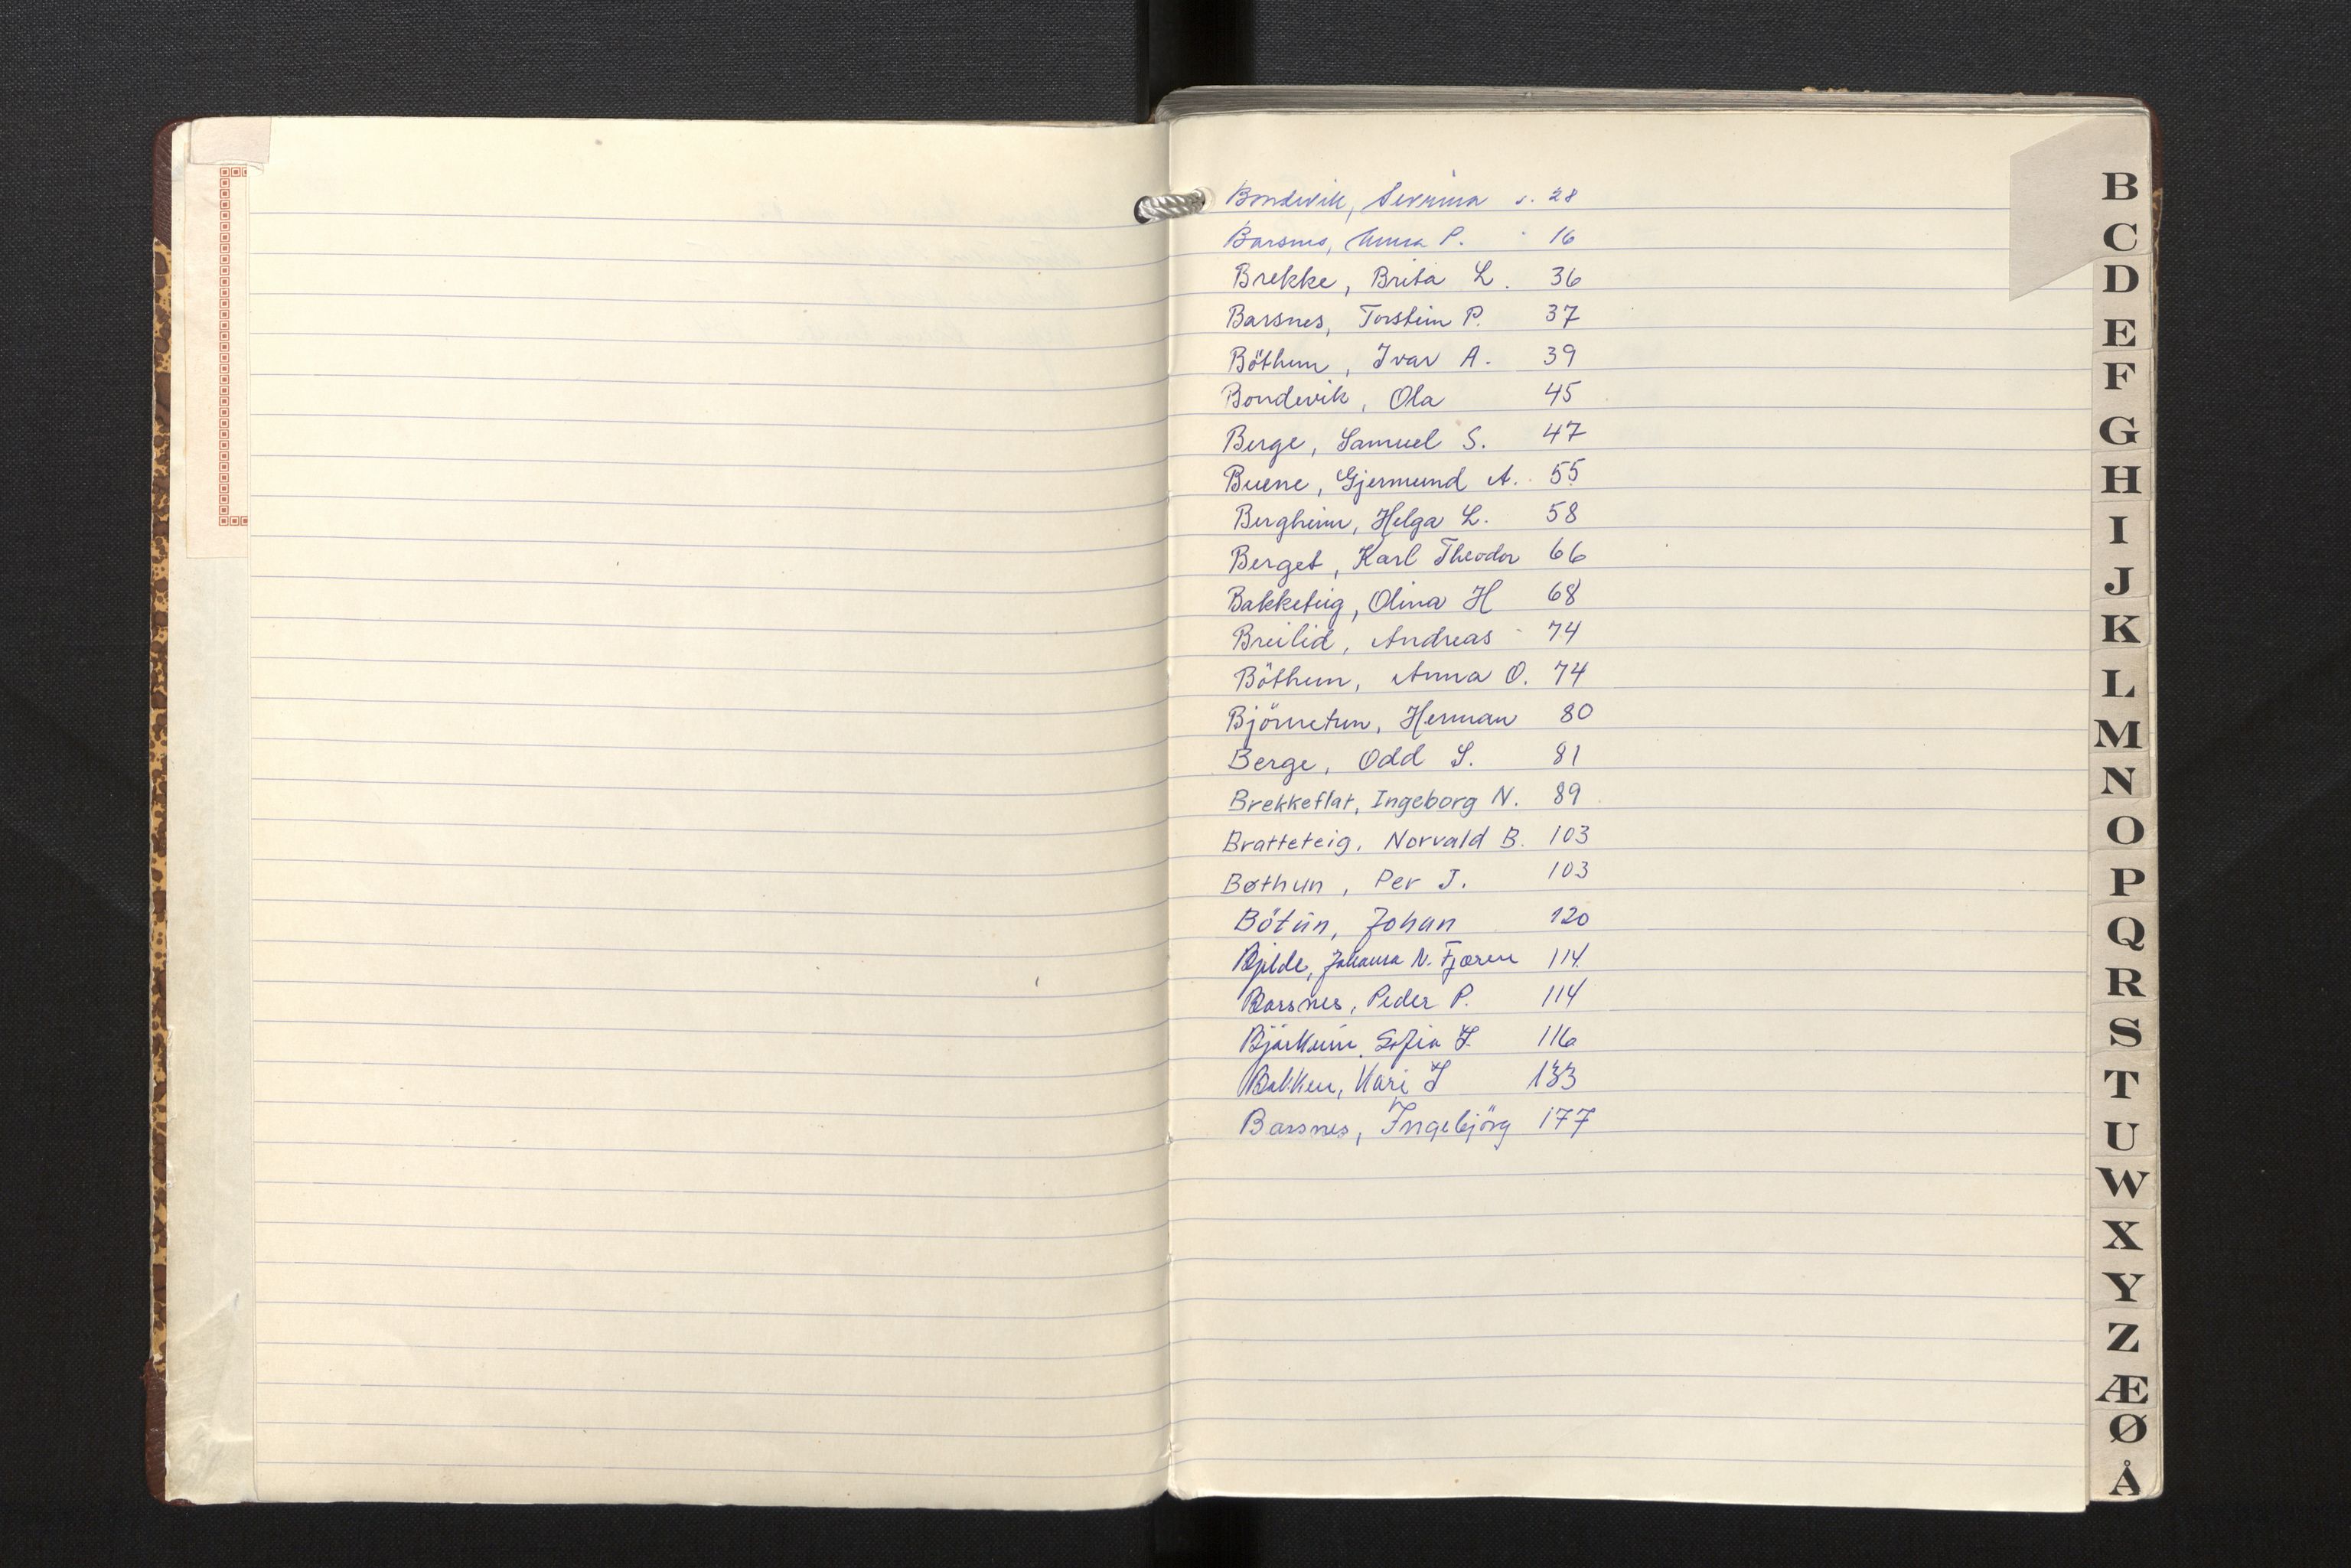 Bondevik, Severina s. 28
Barsnes, Anna P. " 16
Brekke, Brita L. 36
Barsnes, Torstein P. 37
Böthun, Ivar A. 39
Bondevik, Ola 45
Berge, Samuel S. 47
Buene, Gjermund A. 55
Bergheim, Helga L. 58
Berget, Karl Theodor 66
Bakketeig, Olina H 68
Breilid, Andreas 74
Böthun, Anna O. 74
Björnetun, Herman 80
Berge, Odd S. 81
Brekkeflat, Ingeborg N. 89
Bratteteig, Norvald B. 103
Bøthun, Per J. 103
Bötun, Johan 120
Bjelde, Johanna N. Fjæren 114
Barsnes, Peder P. 114
Björkum, Sofia J. 116
Bakken, Kari J 133
Barsnes, Ingebjörg 177
B
C
D
E
F
G
H
I
J
K
L
M
N
O
P
Q
R
S
T
U
W
X
Y
Z
Æ
Ø
Å